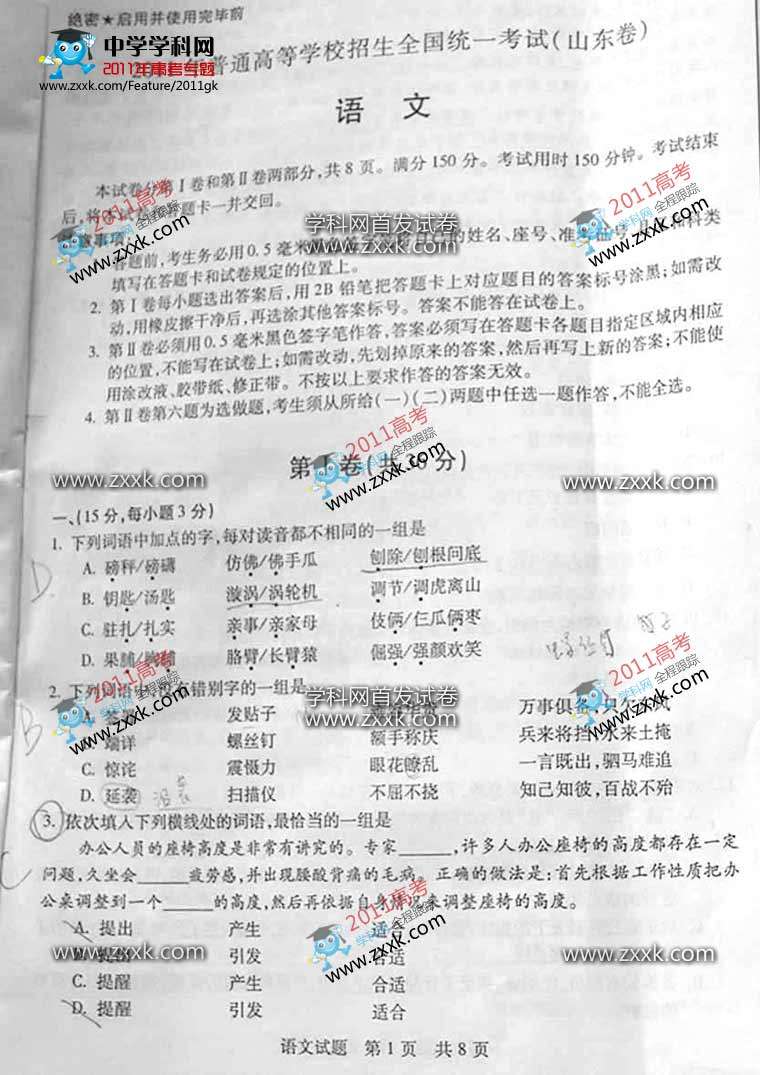 绝密★启用并使用完毕前
中学学科网
2011年高考专题
www.zxxk.com/Feature/2011gk
普通高等学校招生全国统一考试(山东卷)
语 文
本试卷分第Ⅰ卷和第Ⅱ卷两部分,共8页。满分150分。考试用时150分钟。考试结束
后,将 答题卡一并交回。
注意事项:
答题前,考生务必用0.5毫米 的姓名、座号、准
填写在答题卡和试卷规定的位置上。
2. 第Ⅰ卷每小题选出答案后,用2B铅笔把答题卡上对应题目的答案标号涂黑;如需改
动,用橡皮擦干净后,再选涂其他答案标号。答案不能答在试卷上。
3. 第Ⅱ卷必须用0.5毫米黑色签字笔作答,答案必须写在答题卡各题目指定区域内相应
的位置,不能写在试卷上;如需改动,先划掉原来的答案,然后再写上新的答案;不能使
用涂改液、胶带纸、修正带。不按以上要求作答的答案无效。
4. 第Ⅱ卷第六题为选做题,考生须从所给(一)(二)两题中任选一题作答,不能全选。
第Ⅰ卷(共36分)
一、(15分,每小题3分)
1. 下列词语中加点的字,每对读音都不相同的一组是
A. 磅秤/磅礴 仿佛/佛手瓜 刨除/刨根问底
B. 钥匙/汤匙 漩涡/涡轮机 调节/调虎离山
C. 驻扎/扎实 亲事/亲家母 伎俩/仨瓜俩枣
D. 果脯/胸脯 胳臂/长臂猿 倔强/强颜欢笑
D.
2. 下列词语中,没有错别字的一组是
A. 发贴子 万事俱备,只欠东风
B. 端详 螺丝钉 额手称庆 兵来将挡,水来土掩
C. 惊诧 震慑力 眼花瞭乱 一言既出,驷马难追
D. 延袭 扫描仪 不屈不挠 知己知彼,百战不殆
B
3. 依次填入下列横线处的词语,最恰当的一组是
办公人员的座椅高度是非常有讲究的。专家______,许多人办公座椅的高度都存在一定
问题,久坐会______疲劳感,并出现腰酸背痛的毛病。正确的做法是:首先根据工作性质把办
公桌调整到一个______的高度,然后再依据自身情况来调整座椅的高度。
A. 提出 产生 适合
B. 提出 引发 合适
C. 提醒 产生 合适
D. 提醒 引发 适合
C
语文试题 第1页 共8页
2011高考
学科网 全程跟踪
zxxk.com
学科网首发试卷
www.zxxk.com